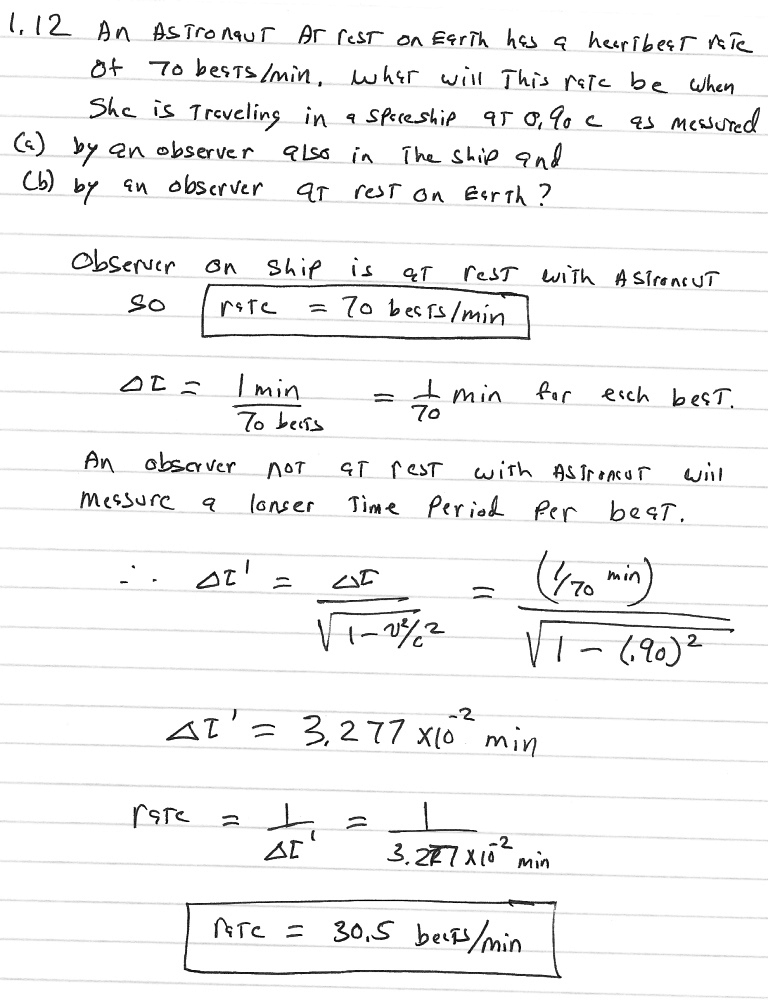 1.12 An Astronaut At rest on Earth has a heartbeat rate
of 70 beats/min. What will This rate be when
She is Traveling in a spaceship at 0.90 c as measured
(a) by an observer also in The ship and
(b) by an observer at rest on Earth?
Observer on ship is at rest with Astronaut
so rate = 70 beats/min
Δt = 1 min / 70 beats = 1/70 min for each beat.
An observer not at rest with Astronaut will
measure a longer Time Period Per beat.
∴ Δt' = Δt / √(1 - v²/c²) = (1/70 min) / √(1 - (.90)²)
Δt' = 3.277 x10⁻² min
rate = 1/Δt' = 1 / 3.277 x10⁻² min
rate = 30.5 beats/min